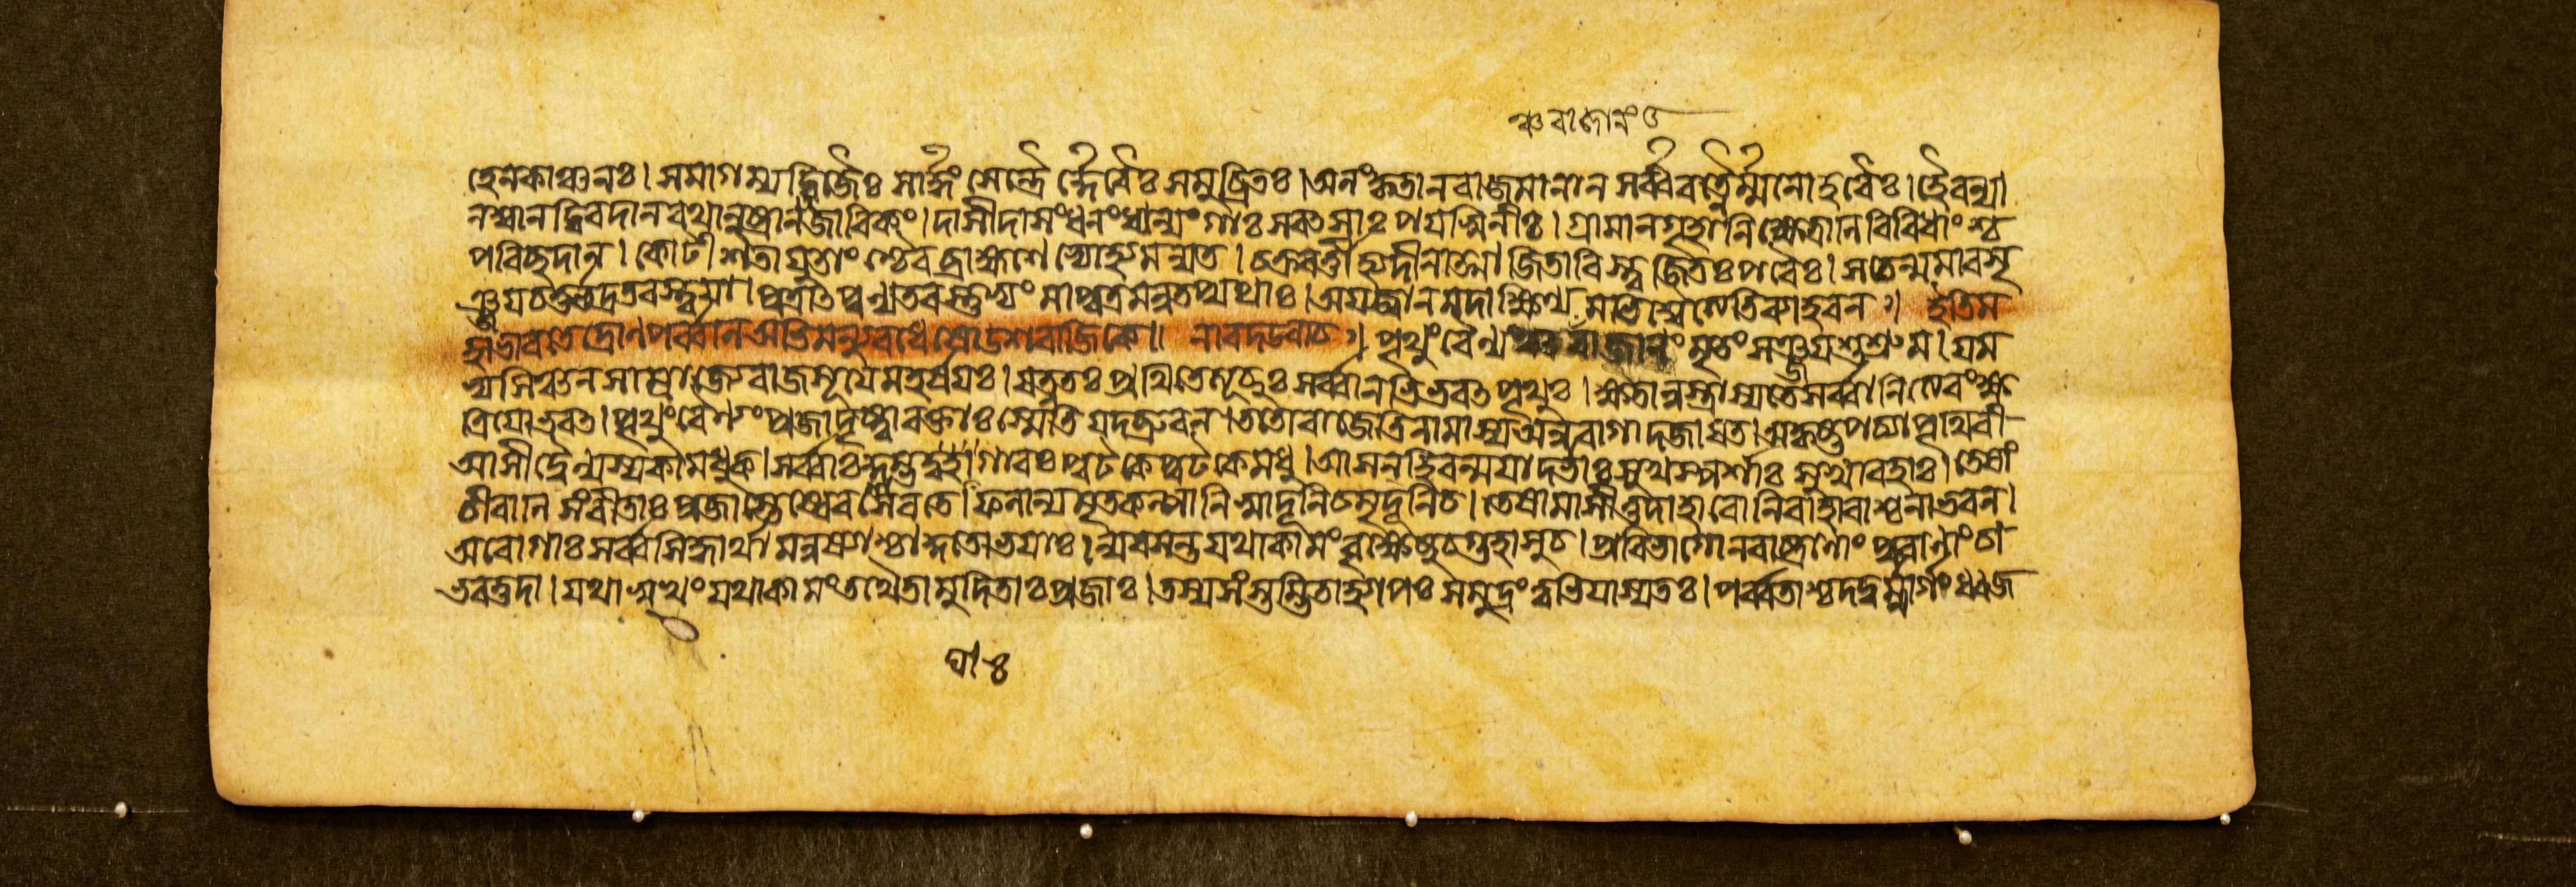 ঞ্চ রাজানং ৫
হেনকাঞ্চনঃ। সমাগম্যদ্বিজৈঃ সার্দ্ধং সেন্দ্রৈর্দ্দেবৈঃ সমুচ্ছ্রিতঃ। অলংকৃতানরাজমানান সর্ব্বরত্নৈর্ম্মনোহরৈঃ। হৈরণ্যা
নশ্বানদ্বিরদানরথানুষ্ট্রানজাবিকং। দাসীদাসংধনংধান্যংগাঃ সবৎসাঃ পয়স্বিনীঃ। গ্রামানগৃহাণিক্ষেত্রানবিবিধাংশ্চ
পরিচ্ছদান। কোটীশতাযুতাংশ্চৈব ব্রাহ্মণেভ্যোহ্যমন্যত। চক্রবর্ত্তীহ্যদীনাত্মা জিতারিস্ত্বজিতঃপরৈঃ। সচেন্মমারসৃ
ঞ্জয়চতুর্ভদ্রতরস্ত্বয়া। পুত্রাৎপুণ্যতরস্তুভ্যং মাপুত্রমনুতপ্যথাঃ। অযজ্বানমদাক্ষিণ্য মভিশ্বৈত্যেতিব্যাহরন॥ ইতিম
হাভারতেদ্রোণপর্ব্বনি অভিমন্যুবধে ষোডশরাজিকে॥ নারদউবাচ॥ পৃথুংবৈন্য মৃতংসৃঞ্জয়শুশ্রুম। যম
ভ্যসিঞ্চনসাম্রাজ্যেরাজসূয়েমহর্ষয়ঃ। যত্নতঃ প্রথিতেত্যূচুঃ সর্ব্বানভিভবৎপৃথুঃ। ক্ষতান্নস্ত্রাস্যতেসর্ব্বানিত্যেবংক্ষ
ত্রিয়োভবৎ। পৃথুংবৈণ্যংপ্রজাদৃষ্ট্বারক্তাঃস্মেতিযদব্রুবন। ততোরাজেতিনামাস্যঅনুরাগাদজায়ত। অকৃষ্টপচ্যাপৃথিবী
আসীদ্বৈন্যস্যকামধুক। সর্ব্বাঃ গাবঃ পুটকেপুটকেমধু। আসনহিরণ্ময়াদর্ভাঃসুখস্পর্শাঃ সুখাবহাঃ। তেষাং
চীরাণি সংবীতাঃ প্রজাস্তেষ্বেবশেরতে। ফলান্যমৃতকল্পানি স্বাদূনিচমৃদূনিচ। তেষামাসীত্তদাহারোনিরাহারাশ্চনাভবন।
অরোগাঃসর্ব্বসিদ্ধার্থা মনুষ্যাশ্চাকুতোভয়াঃ। ন্যবসন্তযথাকামংবৃক্ষেষুচগুহাসুচ। প্রবিভাগোনরাষ্ট্রাণাং পুরাণাংচা
ভবত্তদা। যথাসুখংযথাকামংতথৈতামুদিতাঃপ্রজাঃ। তস্যসংস্তম্ভিতাহ্যাপঃ সমুদ্রংত্বভিযাস্যতঃ। পর্ব্বতাশ্চদদুর্ম্মার্গংধ্বজ